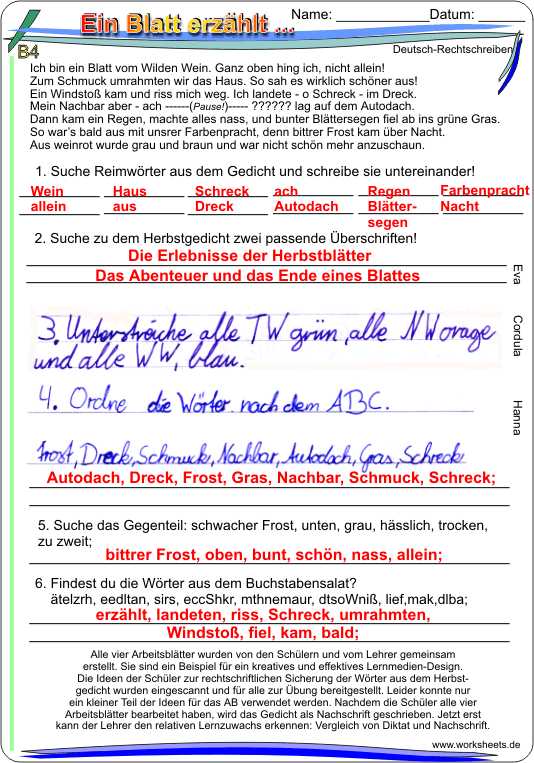 Ein Blatt erzählt ...
Name: ____________ Datum: ______
B4
Deutsch-Rechtschreiben
Ich bin ein Blatt vom Wilden Wein. Ganz oben hing ich, nicht allein!
Zum Schmuck umrahmten wir das Haus. So sah es wirklich schöner aus!
Ein Windstoß kam und riss mich weg. Ich landete - o Schreck - im Dreck.
Mein Nachbar aber - ach ------(Pause!)----- ?????? lag auf dem Autodach.
Dann kam ein Regen, machte alles nass, und bunter Blättersegen fiel ab ins grüne Gras.
So war's bald aus mit unsrer Farbenpracht, denn bittrer Frost kam über Nacht.
Aus weinrot wurde grau und braun und war nicht schön mehr anzuschaun.
1. Suche Reimwörter aus dem Gedicht und schreibe sie untereinander!
Wein Haus Schreck ach Regen Farbenpracht
allein aus Dreck Autodach Blätter- Nacht
segen
2. Suche zu dem Herbstgedicht zwei passende Überschriften!
Die Erlebnisse der Herbstblätter
Das Abenteuer und das Ende eines Blattes
Eva Cordula Hanna
3. Unterstreiche alle TW grün, alle NW orage
und alle WW, blau.
4. Ordne die Wörter nach dem ABC.
Frost, Dreck, Schmuck, Nachbar, Autodach, Gras, Schreck
Autodach, Dreck, Frost, Gras, Nachbar, Schmuck, Schreck;
5. Suche das Gegenteil: schwacher Frost, unten, grau, hässlich, trocken,
zu zweit;
bittrer Frost, oben, bunt, schön, nass, allein;
6. Findest du die Wörter aus dem Buchstabensalat?
ätelzrh, eedltan, sirs, eccShkr, mthnemaur, dtsoWniß, lief,mak,dlba;
erzählt, landeten, riss, Schreck, umrahmten,
Windstoß, fiel, kam, bald;
Alle vier Arbeitsblätter wurden von den Schülern und vom Lehrer gemeinsam
erstellt. Sie sind ein Beispiel für ein kreatives und effektives Lernmedien-Design.
Die Ideen der Schüler zur rechtschriftlichen Sicherung der Wörter aus dem Herbst-
gedicht wurden eingescannt und für alle zur Übung bereitgestellt. Leider konnte nur
ein kleiner Teil der Ideen für das AB verwendet werden. Nachdem die Schüler alle vier
Arbeitsblätter bearbeitet haben, wird das Gedicht als Nachschrift geschrieben. Jetzt erst
kann der Lehrer den relativen Lernzuwachs erkennen: Vergleich von Diktat und Nachschrift.
www.worksheets.de